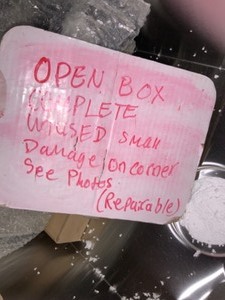 OPEN BOX
COMPLETE
UNUSED Small
Damage on corner
See Photos
(Repairable)